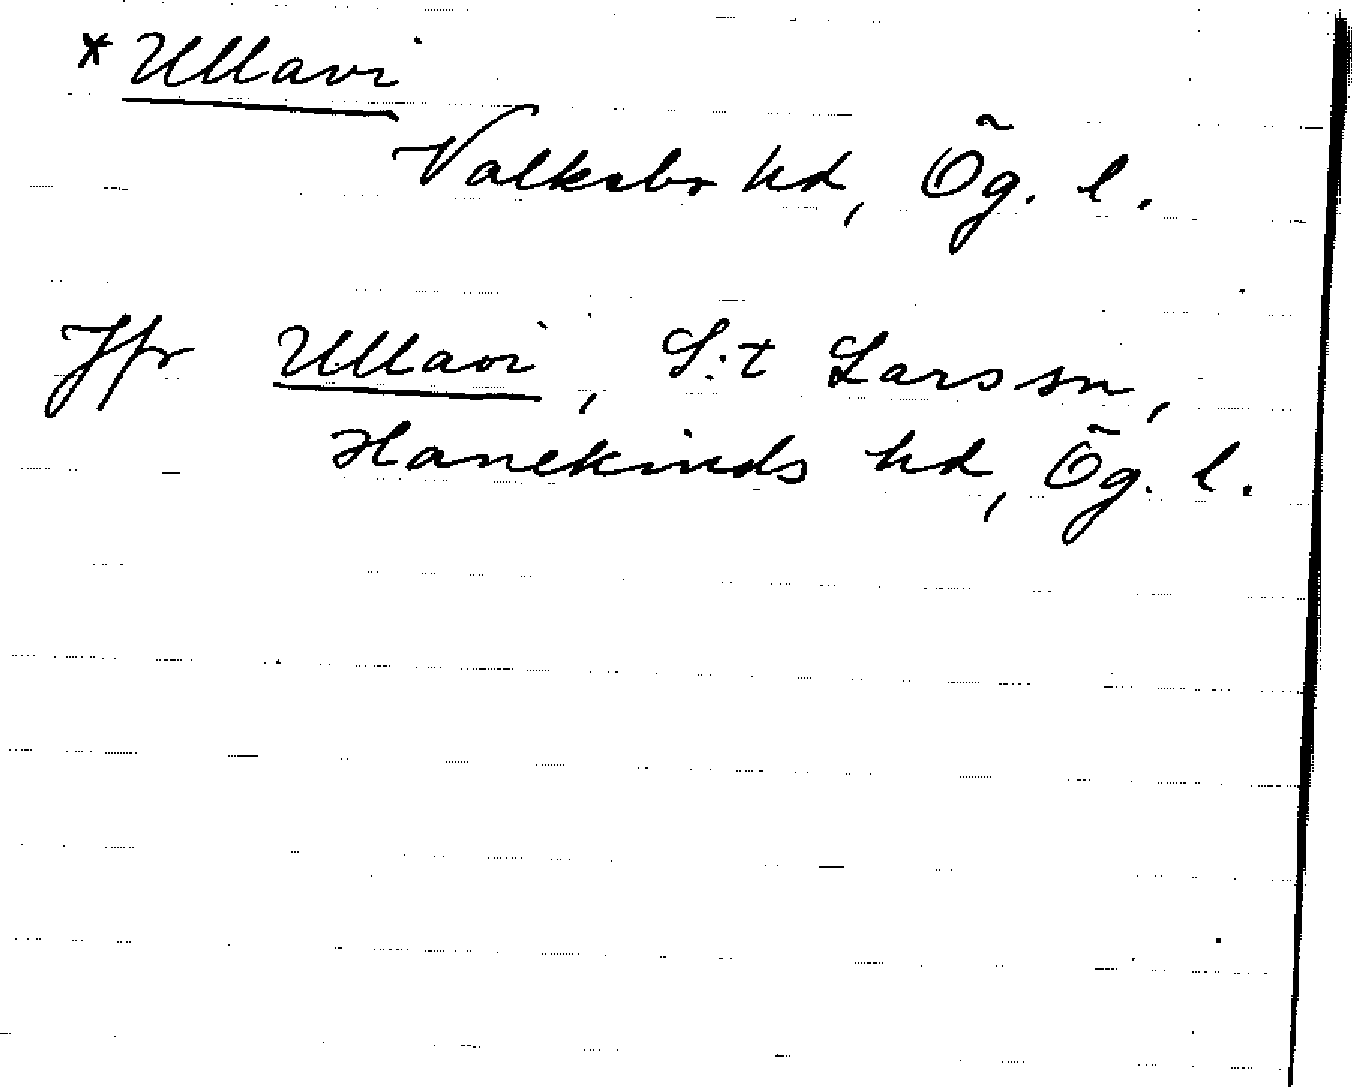 * Ullavi
Valkebo hd, Ög. l.
Jfr Ullavi, S:t Larssn,
Hanekinds hd, Ög. l.